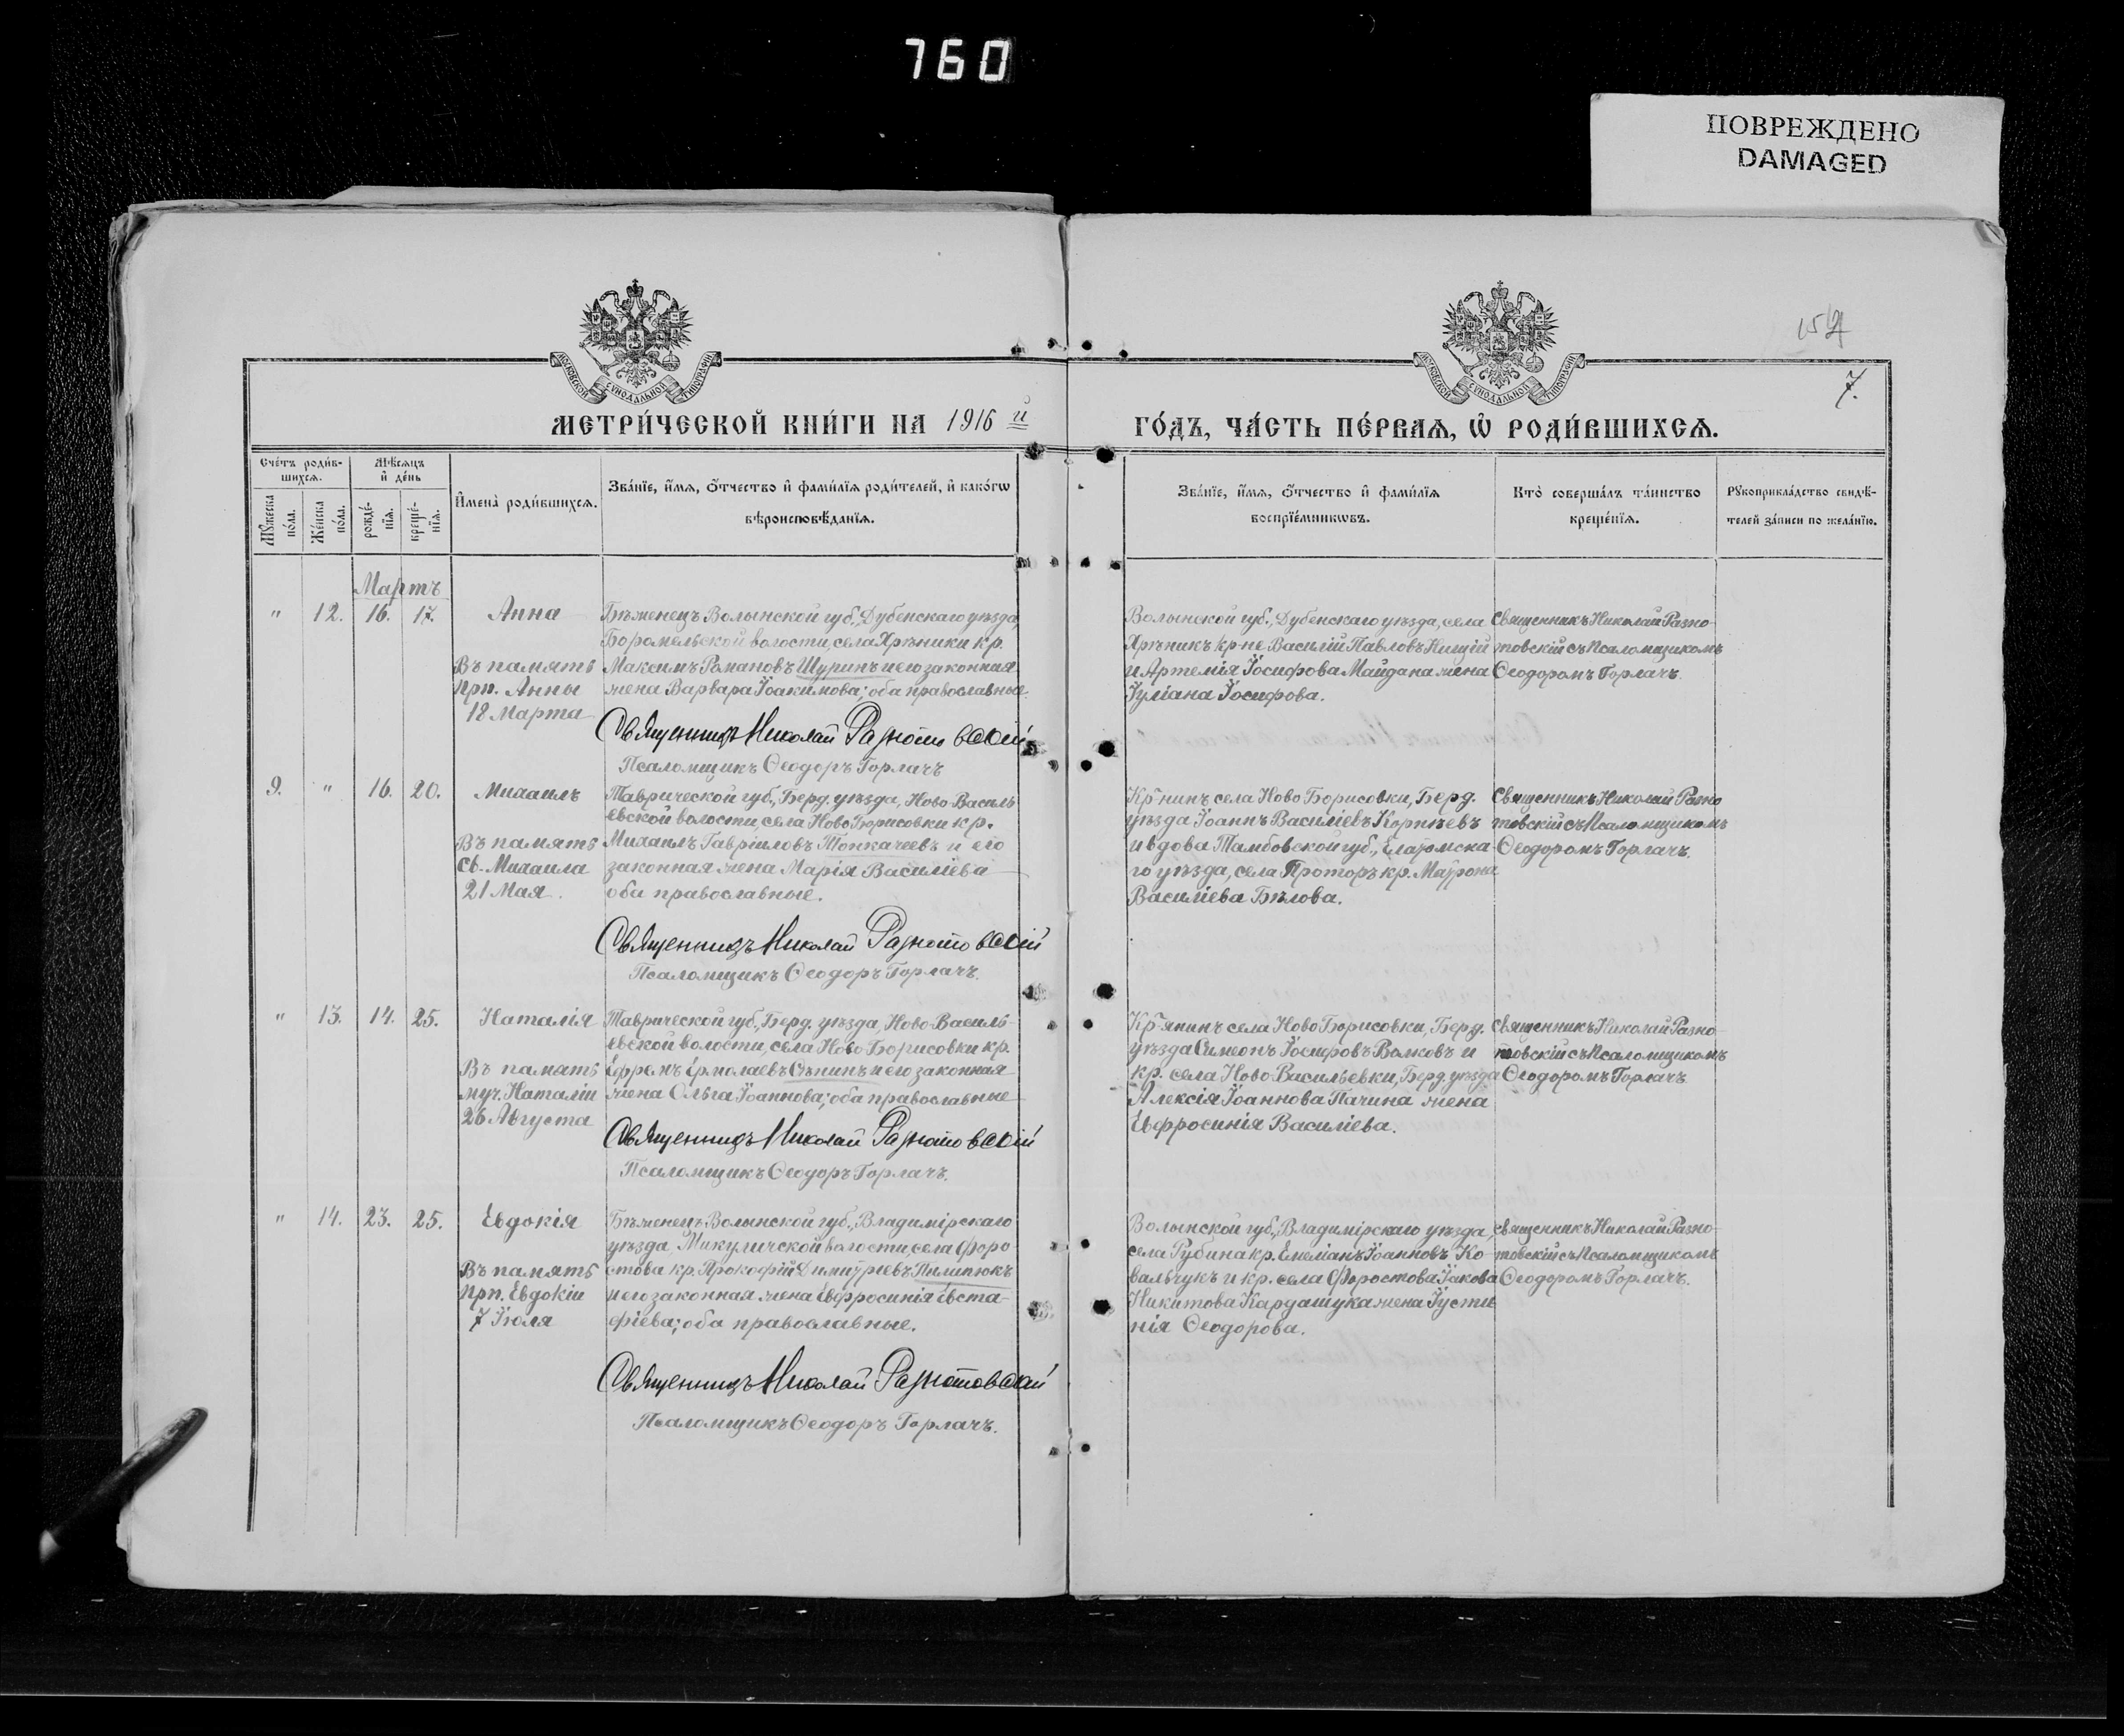 760
ПОВРЕЖДЕНО
DAMAGED
МЕТРИ́ЧЕСКОЙ КНИ́ГИ НА 1916 й
ГО́ДЪ, ЧА́СТЬ ПЕ́РВАЯ, Ѡ РОДИ́ВШИХСЯ.
7.
Сче́тъ роди́в-
шихся.
Мѣ́сяцъ
и де́нь
Мꙋ́жеска по́ла.
Же́нска по́ла.
рожде́-
нїя.
креще́-
нїя.
Имена̀ роди́вшихся.
Зва́нїе, и́мя, ѻ́тчество и фами́лїя роди́телей, и како́гѡ
вѣроисповѣ́данїя.
Зва́нїе, и́мя, ѻ́тчество и фами́лїя
воспрїе́мникѡвъ.
Кто̀ соверша́лъ та́инство
креще́нїя.
Рꙋкоприкла́дство свидѣ́-
телей за́писи по жела́нїю.
Мартъ
" 12. 16. 17. Анна
Въ память
Прп. Анны
18 Марта
Бѣженецъ Волынской губ., Дубенскаго уѣзда,
Боромельской волости, села Хрѣники кр.
Максимъ Романовъ Щуринъ и его законная
жена Варвара Іоакимова; оба православные.
Священникъ Николай Разнотовскій
Псаломщикъ Ѳеодоръ Горлачъ
Волынской губ., Дубенскаго уѣзда, села
Хрѣникъ кр-не Василій Павловъ Нищій
и Артемія Іосифова Майдана жена
Іуліана Іосифова.
Священникъ Николай Разно-
товскій съ Псаломщикомъ
Ѳеодоромъ Горлачъ.
9. " 16. 20. Михаилъ
Въ память
Св. Михаила
21 Мая.
Таврической губ., Берд. уѣзда, Ново-Василь
евской волости, села Ново Борисовки кр.
Михаилъ Гавріиловъ Тонкачеевъ и его
законная жена Марія Василіева
оба православные.
Священникъ Николай Разнотовскій
Псаломщикъ Ѳеодоръ Горлачъ.
Кр-нинъ села Ново Борисовки, Берд.
уѣзда Іоаннъ Василіевъ Корнѣевъ
и вдова Тамбовской губ., Елатомска
го уѣзда, села Проторъ кр. Матрона
Василіева Бѣлова.
Священникъ Николай Разно
товскій съ Псаломщикомъ
Ѳеодоромъ Горлачъ.
" 13. 14. 25. Наталія
Въ память
муч. Наталіи
26 Августа
Таврической губ., Берд. уѣзда, Ново-Василь-
евской волости, села Ново Борисовки кр.
Ефремъ Ермолаевъ Сѣнинъ и его законная
жена Ольга Іоаннова; оба православные
Священникъ Николай Разнотовскій
Псаломщикъ Ѳеодоръ Горлачъ.
Кр-янинъ села Ново Борисовки, Берд.
уѣзда Симеонъ Іосифовъ Волковъ и
кр. села Ново-Васильевки, Берд. уѣзда
Алексія Іоаннова Пачина жена
Евфросинія Василіева.
Священникъ Николай Разно-
товскій съ Псаломщикомъ
Ѳеодоромъ Горлачъ
" 14. 23. 25. Евдокія
Въ память
Прп. Евдокіи
7 Іюля
Бѣженецъ Волынской губ., Владимірскаго
уѣзда, Микуличской волости, села Форо
стова кр. Прокофій Димитріевъ Пилипюкъ
и его законная жена Евфросинія Евста-
фіева; оба православные.
Священникъ Николай Разнотовскій
Псаломщикъ Ѳеодоръ Горлачъ.
Волынской губ., Владимірскаго уѣзда,
села Рубина кр. Емеліанъ Іоанновъ Ко-
вальчукъ и кр. села Форостова Іакова
Никитова Кардашука жена Іусти
нія Ѳеодорова.
Священникъ Николай Разно-
товскій съ Псаломщикомъ
Ѳеодоромъ Горлачъ.